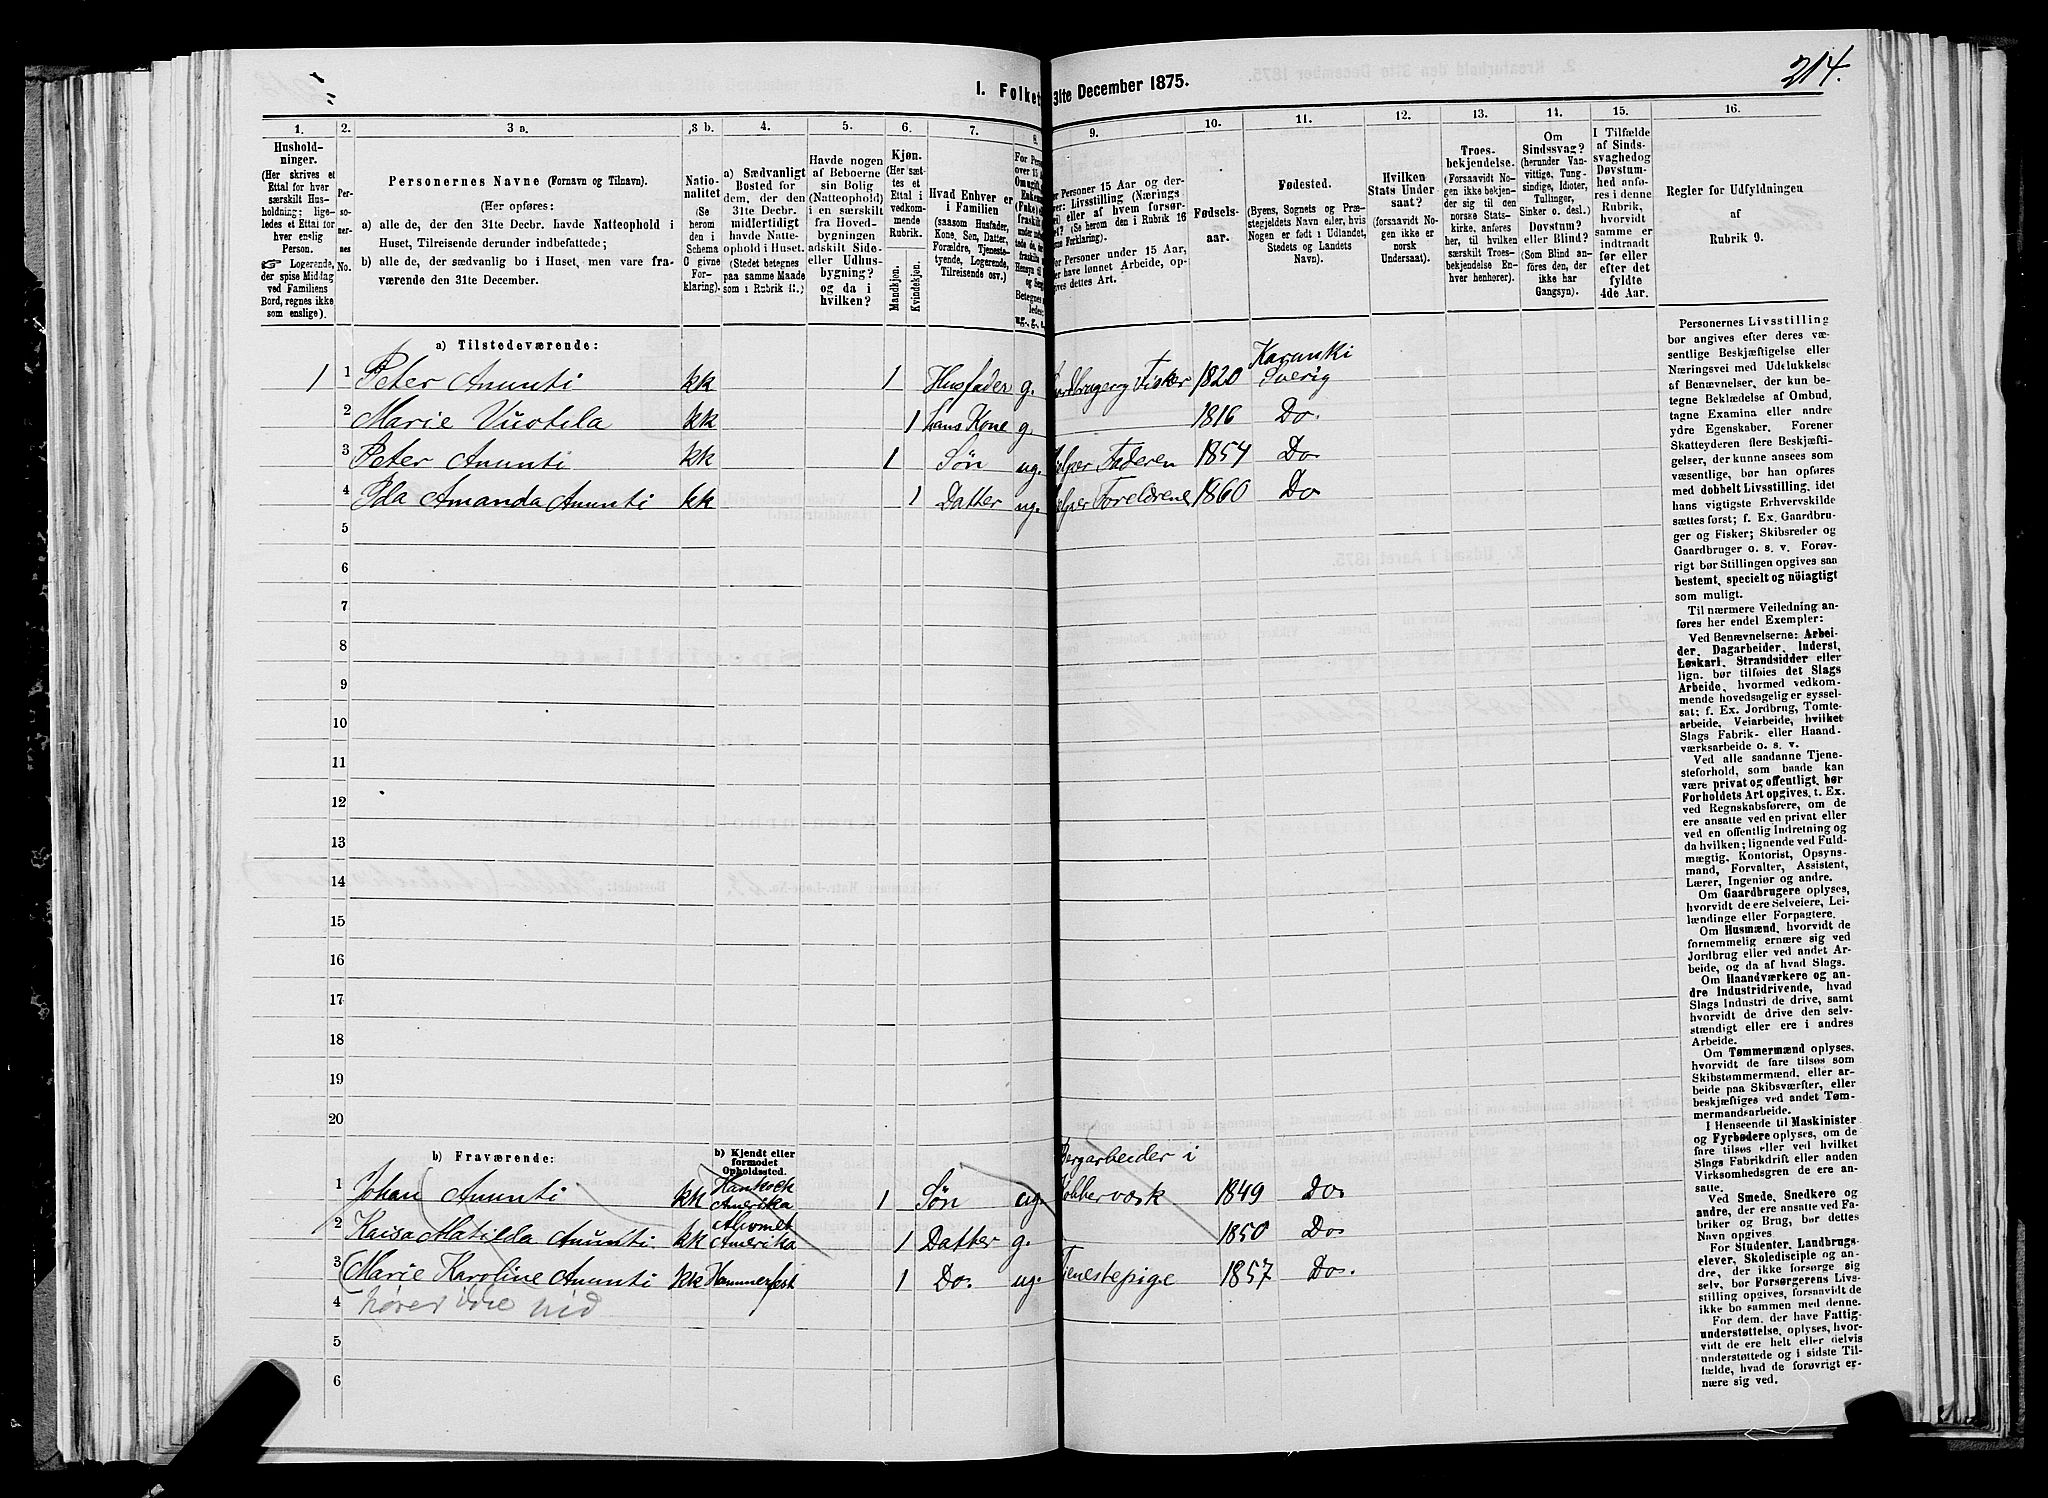 214.
I. Folket
31te December 1875.
1. 2. 3 a. 3 b. 4. 5. 6. 7. 8. 9. 10. 11. 12. 13. 14. 15. 16.
Hushold-
ninger.
(Her skrives et
Ettal for hver
særskilt Hus-
holdning; lige-
ledes et Ettal for
hver enslig
Person.
☞ Logerende,
der spise Middag
ved Familiens
Bord, regnes ikke
som enslige).
Per-
so-
ner-
nes
No.
Personernes Navne (Fornavn og Tilnavn).
(Her opføres:
a) alle de, der den 31te Decbr. havde Natteophold i
Huset, Tilreisende derunder indbefattede;
b) alle de, der sædvanlig bo i Huset, men vare fra-
værende den 31te December.
Natio-
nalitet
(Se
herom
den i
Schema
G givne
For-
klaring).
a) Sædvanligt
Bosted for
dem, der den
31te Decbr.
midlertidigt
havde Natte-
ophold i Huset.
(Stedet betegnes
paa samme Maade
som i Rubrik 11.)
Havde nogen
af Beboerne
sin Bolig
(Natteophold)
i en særskilt
fra Hoved-
bygningen
adskilt Side-
eller Udhus-
bygning?
og da i
hvilken?
Kjøn.
(Her sæt-
tes et
Ettal i
vedkom-
mende
Rubrik.
Mandkjøn.
Kvindekjøn.
Hvad Enhver er
i Familien
(saasom Husfader,
Kone, Søn, Datter,
Forældre, Tjeneste-
tyende, Logerende,
Tilreisende osv.)
Fødsels-
aar.
Fødested.
(Byens, Sognets og Præ-
stegjeldets Navn eller, hvis
Nogen er født i Udlandet,
Stedets og Landets
Navn).
Hvilken
Stats Under-
saat?
(forsaavidt No-
gen ikke er
norsk
Undersaat).
Troes-
bekjendelse.
(Forsaavidt No-
gen ikke bekjen-
der sig til den
norske Stats-
kirke, anføres
her, til hvilken
særskilt Troes-
bekjendelse En-
hver henhører).
Om
Sindssvag?
(herunder Van-
vittige, Tung-
sindige, Idioter,
Tullinger,
Sinker o. desl.)
Døvstum?
eller Blind?
(Som Blind an-
føres den, der
ikke har
Gangsyn).
I Tilfælde
af Sinds-
svaghed og
Døvstum-
hed anfø-
res i denne
Rubrik,
hvorvidt
samme er
indtraadt
før eller
efter det
fyldte
4de Aar.
Regler for Udfyldningen
af
Rubrik 9.
a) Tilstedeværende:
1 1 Peter Anunti kk 1 Husfader g. Jordbruger og Fisker 1820 Karunki Sverig
2 Marie Vuotila kk 1 hans Kone g. 1816 Do.
3 Peter Anunti kk 1 Søn ug. hjelper Faderen 1854 Do
4 Ida Amanda Anunti kk 1 Datter ug. hjelper Foreldrene 1860 Do
5
6
7
8
9
10
11
12
13
14
15
16
17
18
19
20
b) Fraværende:
b) Kjendt eller
formodet
Opholdssted.
1 Johan Anunti kk Amerika 1 Søn ug. Bergarbeider i Kobberværk 1849 Do
2 Kaisa Matilda Anunti kk Amerika 1 Datter g. 1850 Do
3 (Marie Karoline Anunti kk Hammerfest 1 Do. ug. Tjenestepige 1857 Do.
4 hører ikke hid
5
6
Personernes Livsstilling
bør angives efter deres væ-
sentlige Beskjæftigelse eller
Næringsvei med Udelukkelse
af Benævnelser, der kun be-
tegne Beklædelse af Ombud,
tagne Examina eller andre
ydre Egenskaber. Forener
Skatteyderen flere Beskjæfti-
gelser, der kunne ansees som
væsentlige, bør han opføres
med dobbelt Livsstilling, idet
hans vigtigste Erhvervskilde
sættes først; f. Ex. Gaardbru-
ger og Fisker; Skibsreder og
Gaardbruger o. s. v. Forøv-
rigt bør Stillingen opgives saa
bestemt, specielt og nöiagtigt
som muligt.
Til nærmere Veiledning an-
føres her endel Exempler:
Ved Benævnelserne: Arbei-
der, Dagarbeider, Inderst,
Løskarl, Strandsidder eller
lign. bør tilføies det Slags
Arbeide, hvormed vedkom-
mende hovedsagelig er syssel-
sat; f. Ex. Jordbrug, Tomte-
arbeide, Veiarbeide, hvilket
Slags Fabrik- eller Haand-
værksarbeide o. s. v.
Ved alle saadanne Tjene-
steforhold, som baade kan
være privat og offentligt, bør
Forholdets Art opgives, f. Ex.
ved Regnskabsførere, om de
ere ansatte ved en privat eller
ved en offentlig Indretning og
da hvilken; lignende ved Fuld-
mægtig, Kontorist, Opsyns-
mand, Forvalter, Assistent,
Lærer, Ingeniør og andre.
Om Gaardbrugere oplyses,
hvorvidt de ere Selveiere, Lei-
lændinge eller Forpagtere.
Om Husmænd, hvorvidt de
fornemmelig ernære sig ved
Jordbrug eller ved andet Ar-
beide, og da af hvad Slags.
Om Haandværkere og an-
dre Industridrivende, hvad
Slags Industri de drive, samt
hvorvidt de drive den selv-
stændigt eller ere i andres
Arbeide.
Om Tømmermænd oplyses,
hvorvidt de fare tilsøs som
Skibstømmermænd, eller ar-
beide paa Skibsværfter, eller
beskjæftiges ved andet Tøm-
mermandsarbeide.
I Henseende til Maskinister
og Fyrbødere oplyses, om de
fare tilsøs eller ved hvilket
Slags Fabrikdrift eller anden
Virksomhedsgren de ere an-
satte.
Ved Smede, Snedkere og
andre, der ere ansatte ved Fa-
briker og Brug, bør dettes
Navn opgives.
For Studenter, Landbrugs-
elever, Skoledisciple og an-
dre, der ikke forsørge sig
selv, bør Forsørgerens Livs-
stilling opgives, forsaavidt de
ikke bo sammen med denne.
For dem, der have Fattig-
understøttelse, oplyses, hvor-
vidt de ere helt eller delvis
understøttede og i sidste Til-
fælde, hvad de forøvrigt er-
nære sig ved.